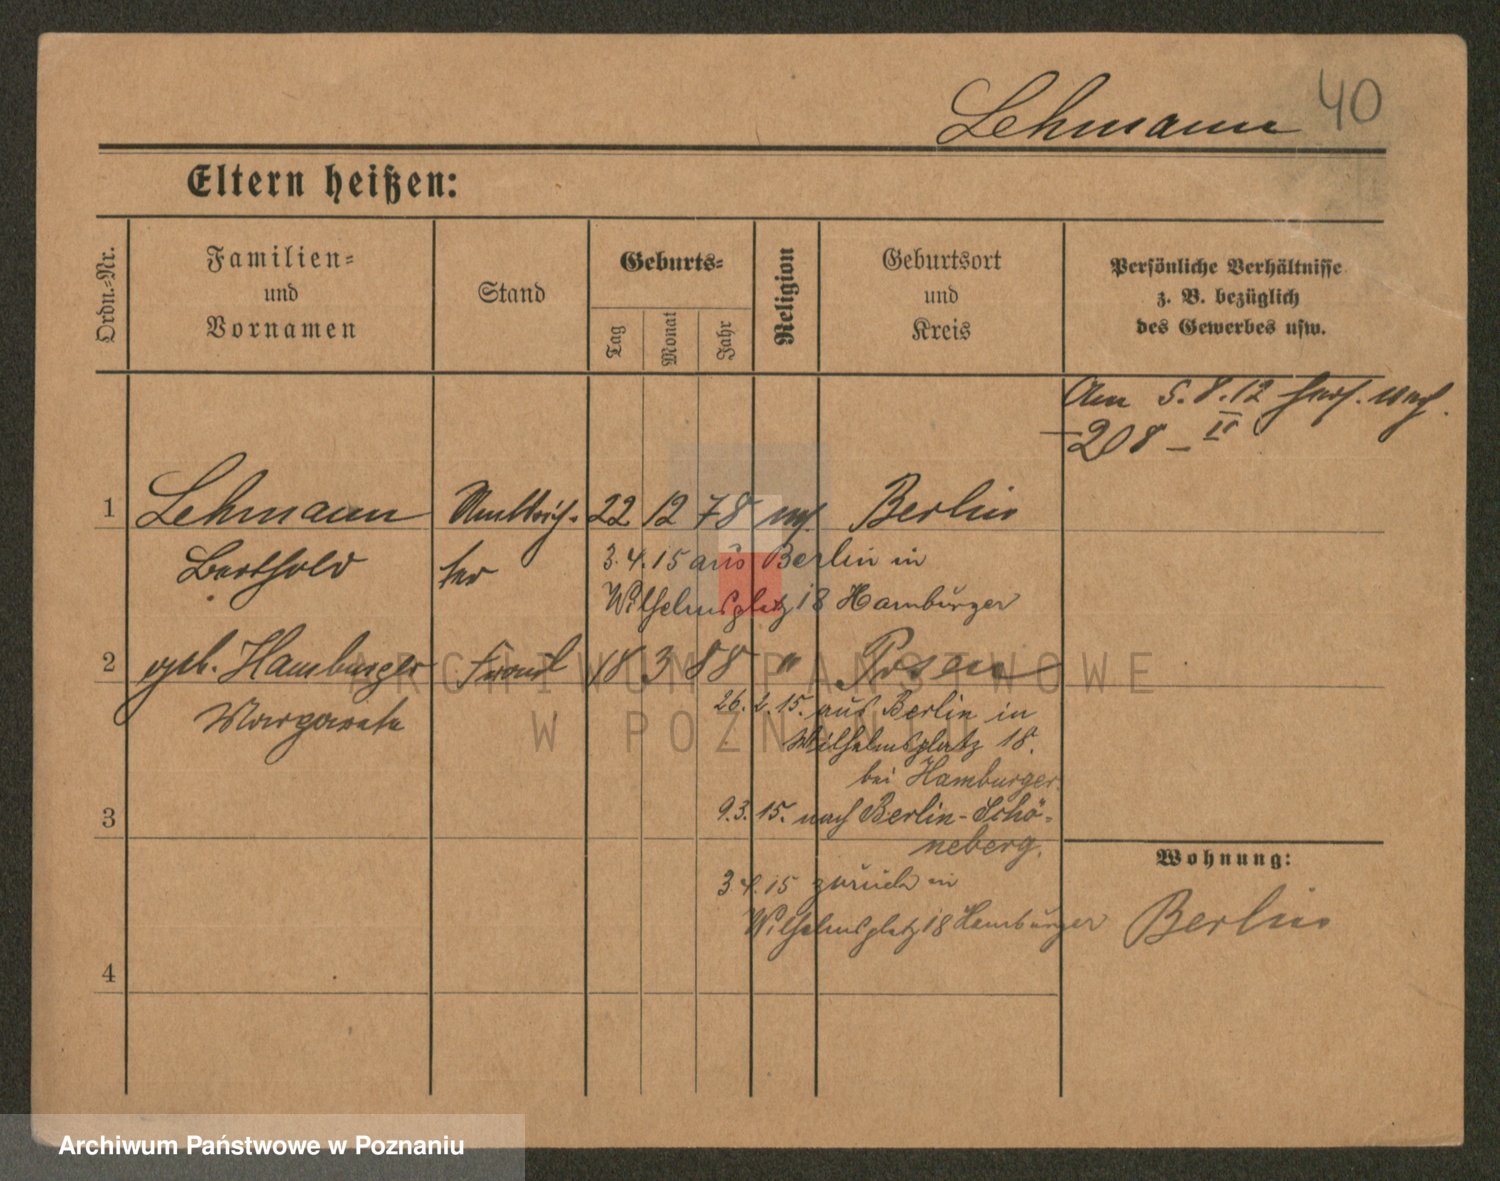 Lehmann 40
Eltern heißen:
Ordn.-Nr.
Familien-
und
Vornamen
Stand
Geburts-
Tag
Monat
Jahr
Religion
Geburtsort
und
Kreis
Persönliche Verhältnisse
z. B. bezüglich
des Gewerbes usw.
Am 5.8.12
208 – II
1 Lehmann Amtsrich- 22 12 78 Berlin
Berthold ter
3.4.15 aus Berlin in
Wilhelmsplatz 18 Hamburger
2 geb. Hamburger 18 3 88 " Posen
Margarete
26.2.15. aus Berlin in
Wilhelmsplatz 18.
bei Hamburger
3
9.3.15. nach Berlin-Schö-
neberg.
Wohnung:
Berlin
3.4.15 zurück in
Wilhelmsplatz 18 Hamburger
4
ARCHIWUM PAŃSTWOWE
W POZNANIU
Archiwum Państwowe w Poznaniu